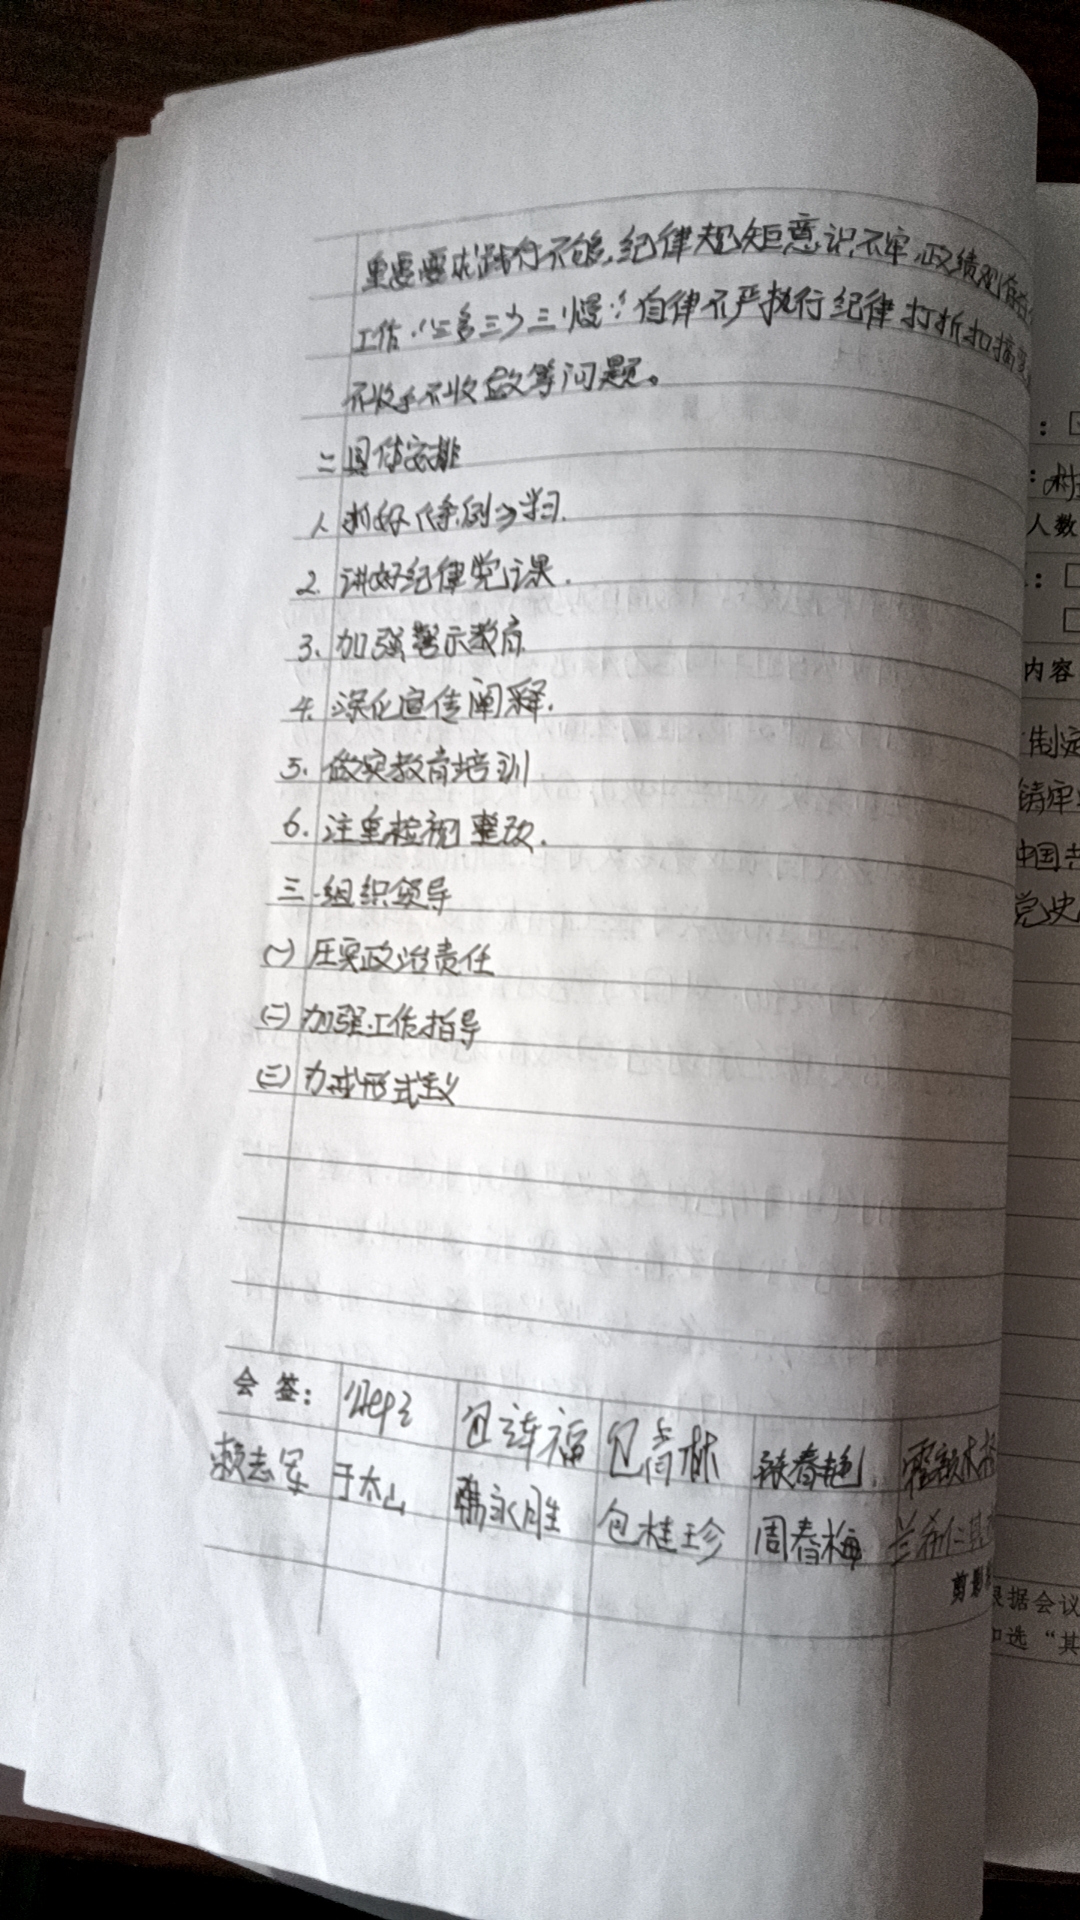 重要要求践行不够,纪律规矩意识不牢,政绩观
工作“三多三少三慢”自律不严执行纪律打折扣搞变
不收手不收敛等问题。
二 具体安排
1. 抓好《条例》学习.
2. 讲好纪律党课.
3. 加强警示教育
4. 深化宣传阐释.
5. 做实教育培训
6. 注重检视整改.
三 组织领导
(一) 压实政治责任
(二) 加强工作指导
(三) 力戒形式主义
会 签: 包连福 包青林 张春艳
志军 于太山 韩永胜 包桂珍 周春梅
:
:
人数
:
内容
制定
中国共
党史
根据会议
如选“其